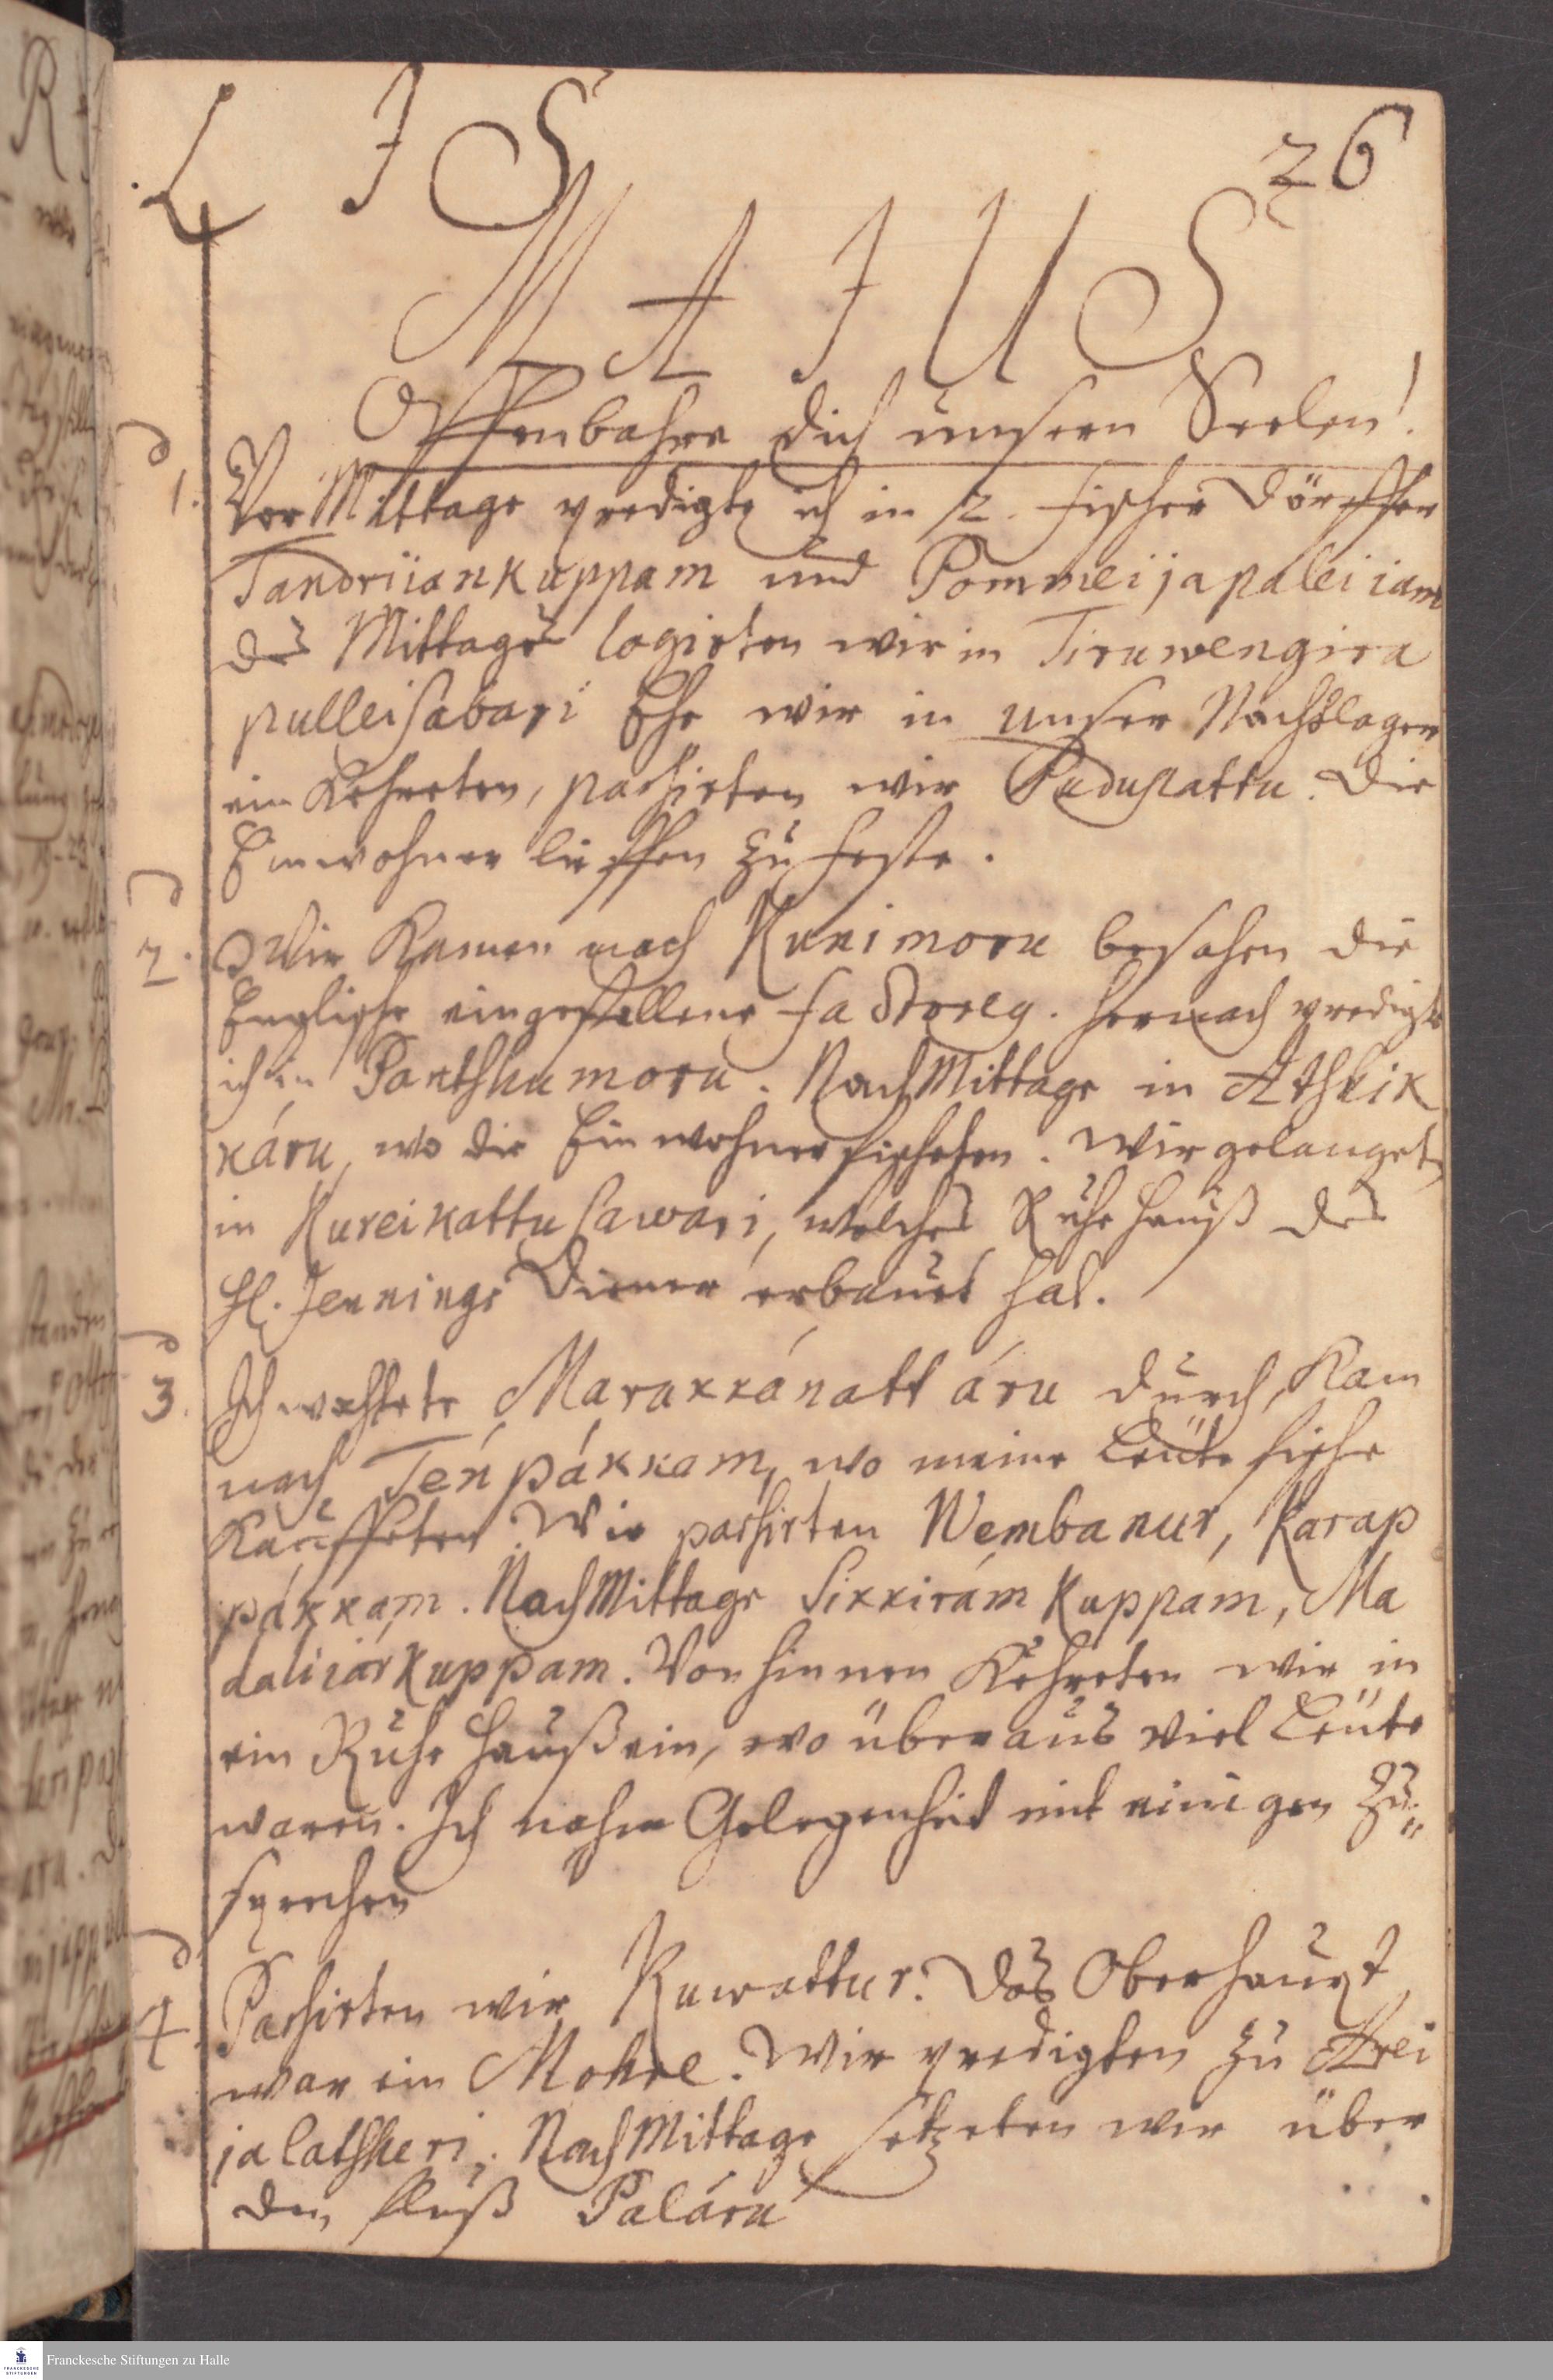 L I S
26
M A J U S
Offenbahre dich unsern Seelen!
d
1. Vor Mittage predigte ich in 2. Fischer Dörffer
Tandriiankuppam und Pommeijapaleiiam
des Mittags logirten wir in Tiruwengira
pulleisabari Ehe wir in unser Nachtlager
ein Kehreten, passirten wir Pudupattu. Die
Einwohner lieffen zu Feste.
d
2. Wir Kamen nach Kunimoru besahen die
Englische eingefallene Factorey. Hernach predigte
ich in Pantshumoru. NachMittage in Atshik
káru, wo die Einwohner fischeten. Wir gelangeten
in Kureikattusawari, welches Ruhe Hauß des
H. Jennings Diener erbauet hat.
d
3. Ich wahtete Marukkánatt áru durch, Kam
nach Ténpákkam, wo meine Leüte fische
Kauffeten. Wir passirten Wembanur, Karap
pákkam. NachMittage Sikkirám Kuppam, Ma
daliiárkuppam. Von hinnen Kehreten wir in
ein Ruhe Hauß ein, wo überaus viel Leüte
waren. Ich nahm Gelegenheit mit einigen Zu=
sprechen
d
4. Passirten wir Kuwattur. Das Oberhaupt
war ein Mohre. Wir predigten zu Arei
jalatsheri. NachMittage setzeten wir über
den Fluß Paláru
Franckesche Stiftungen zu Halle